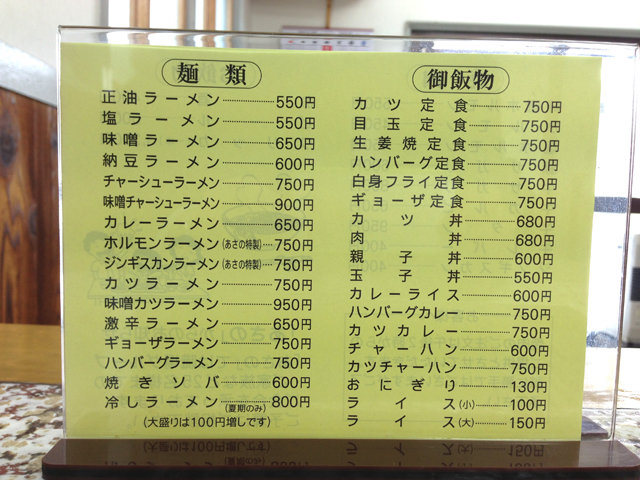 麺類
正油ラーメン 550円
塩ラーメン 550円
味噌ラーメン 650円
納豆ラーメン 600円
チャーシューラーメン 750円
味噌チャーシューラーメン 900円
カレーラーメン 650円
ホルモンラーメン(あさの特製) 750円
ジンギスカンラーメン(あさの特製) 750円
カツラーメン 750円
味噌カツラーメン 950円
激辛ラーメン 650円
ギョーザラーメン 750円
ハンバーグラーメン 750円
焼きソバ 600円
冷しラーメン(夏期のみ) 800円
(大盛りは100円増しです)
御飯物
カツ定食 750円
目玉定食 750円
生姜焼定食 750円
ハンバーグ定食 750円
白身フライ定食 750円
ギョーザ定食 750円
カツ丼 680円
肉丼 680円
親子丼 600円
玉子丼 550円
カレーライス 600円
ハンバーグカレー 750円
カツカレー 750円
チャーハン 600円
カツチャーハン 750円
おにぎり 130円
ライス(小) 100円
ライス(大) 150円